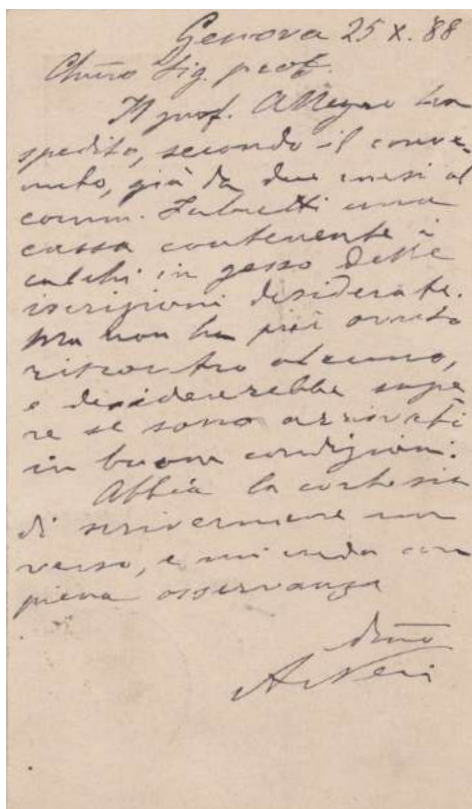 Genova 25 X. 88
Chmo Sig. prof.
Il prof. Allegro ha
spedito, secondo il conve-
nuto, già da due mesi al
comm. Fabretti una
cassa contenente i
calchi in gesso delle
iscrizioni desiderate.
Ma non ha più avuto
riscontro alcuno,
e desidererebbe sape
re se sono arrivati
in buone condizioni.
Abbia la cortesia
di scrivermene un
verso, e mi creda con
piena osservanza
dmo
A. Neri